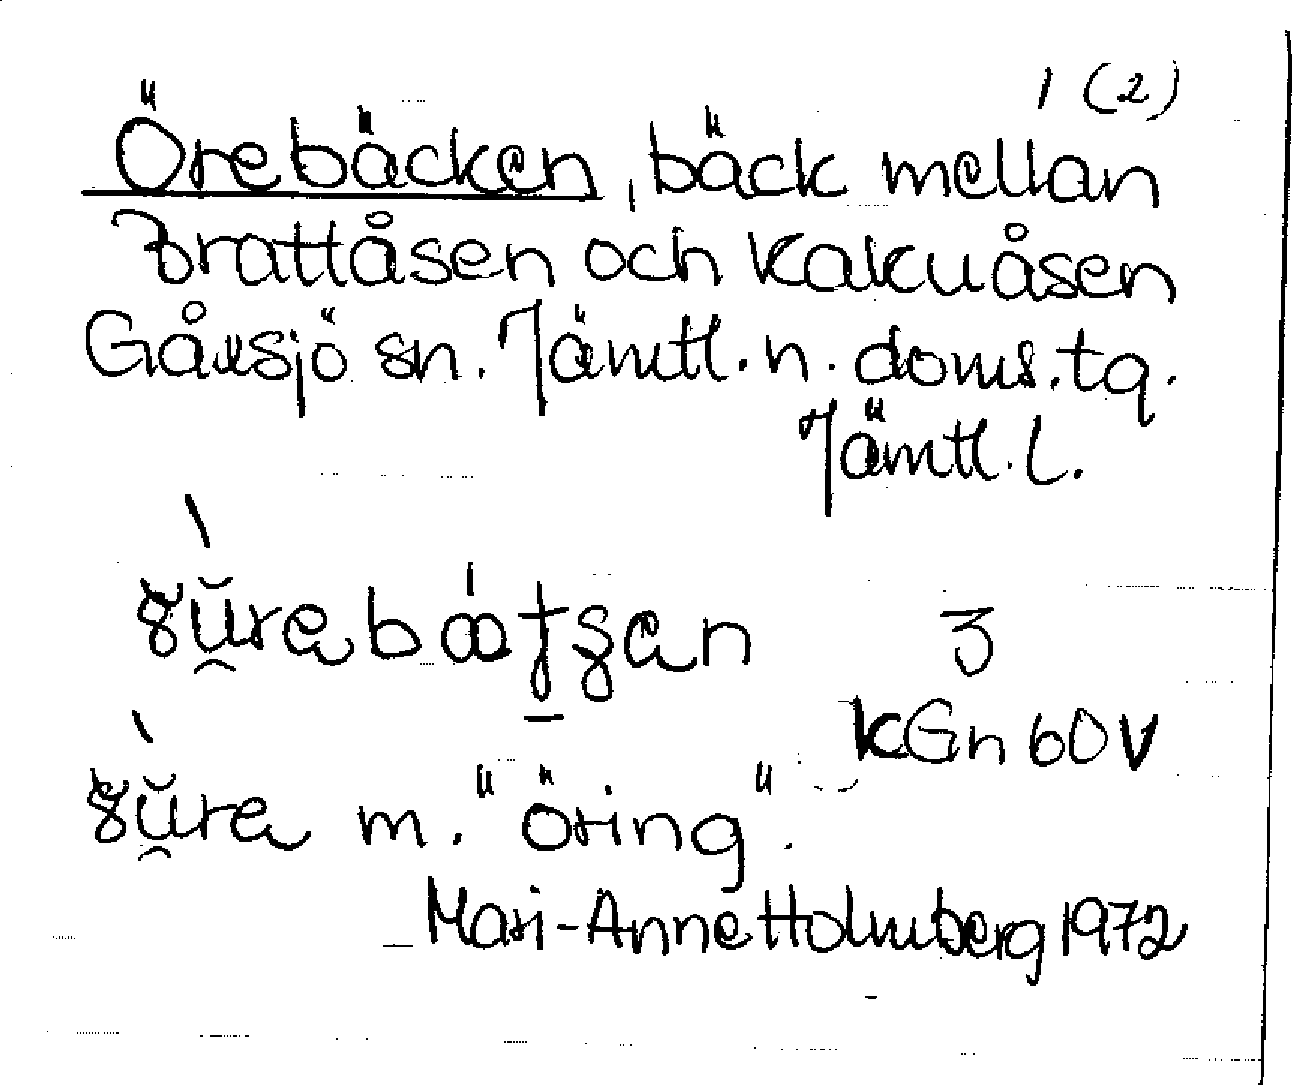 1 (2)
Örebäcken, bäck mellan
Brattåsen och Kakuåsen
Gåxsjö sn. Jämtl. n. doms. tg.
Jämtl. l.
3
KGn 60 V
m. "öring".
Mari-Anne Holmberg 1972